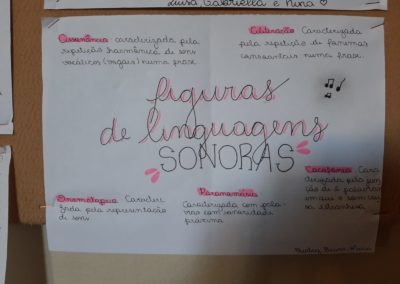 Luisa, Gabriella e Nina ♡
Assonância - caracterizada pela
repetição harmônica de sons
vocálicos (vogais) numa frase.
Aliteração - Caracterizada
pela repetição de fonemas
consonantais numa frase.
figuras
de linguagens
SONORAS
Onomatopeia - Caracteri
zada pela representação
de sons
Paronomásia
Caracterizada com pala-
vras com sonoridade
próxima
Cacofonia - Cara
cterizada pela jun
ção de 2 palavras